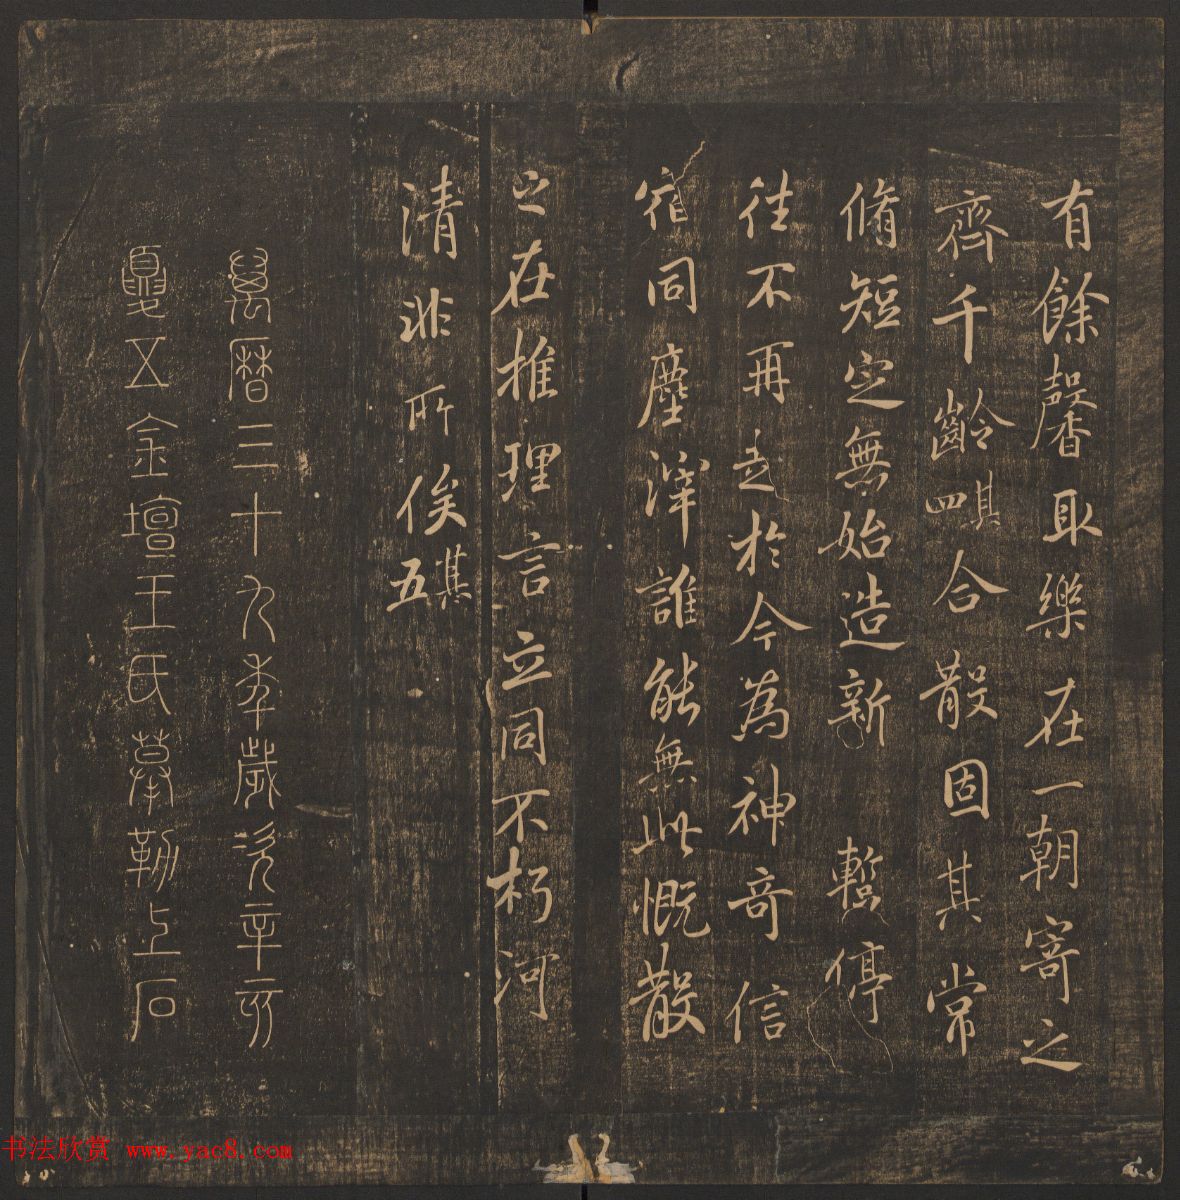 有餘馨取樂在一朝寄之
齊千齡其四合散固其常
脩短定無始造新暫停
往不再起於今為神奇信
宿同塵滓誰能無此慨散
之在推理言立同不朽河
清非所俟其五
萬曆三十九年歲次辛亥
夏五金壇王氏摹勒上石
书法欣赏 www.yac8.com